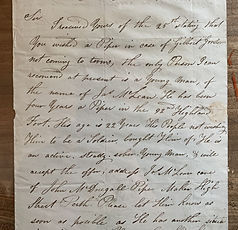 Sir
I received Yours of the 25th Stating that
You wished a Piper in case of Gilbert Gordon
not coming to terms, the only Person I can
recommend at present is a Young Man, of
the name of Jno McLean He has been
four Years a Piper in the 92nd Highland
Fort. His age is 22 Years The People not wishing
Him to be a Soldier, bought Him of, He is
an active, steady sober Young Man, & will
accept the offer, address Jno McLean care
of John McDougall Piper Maker High
Street Perth Please let Him know as
soon as posible as He has another